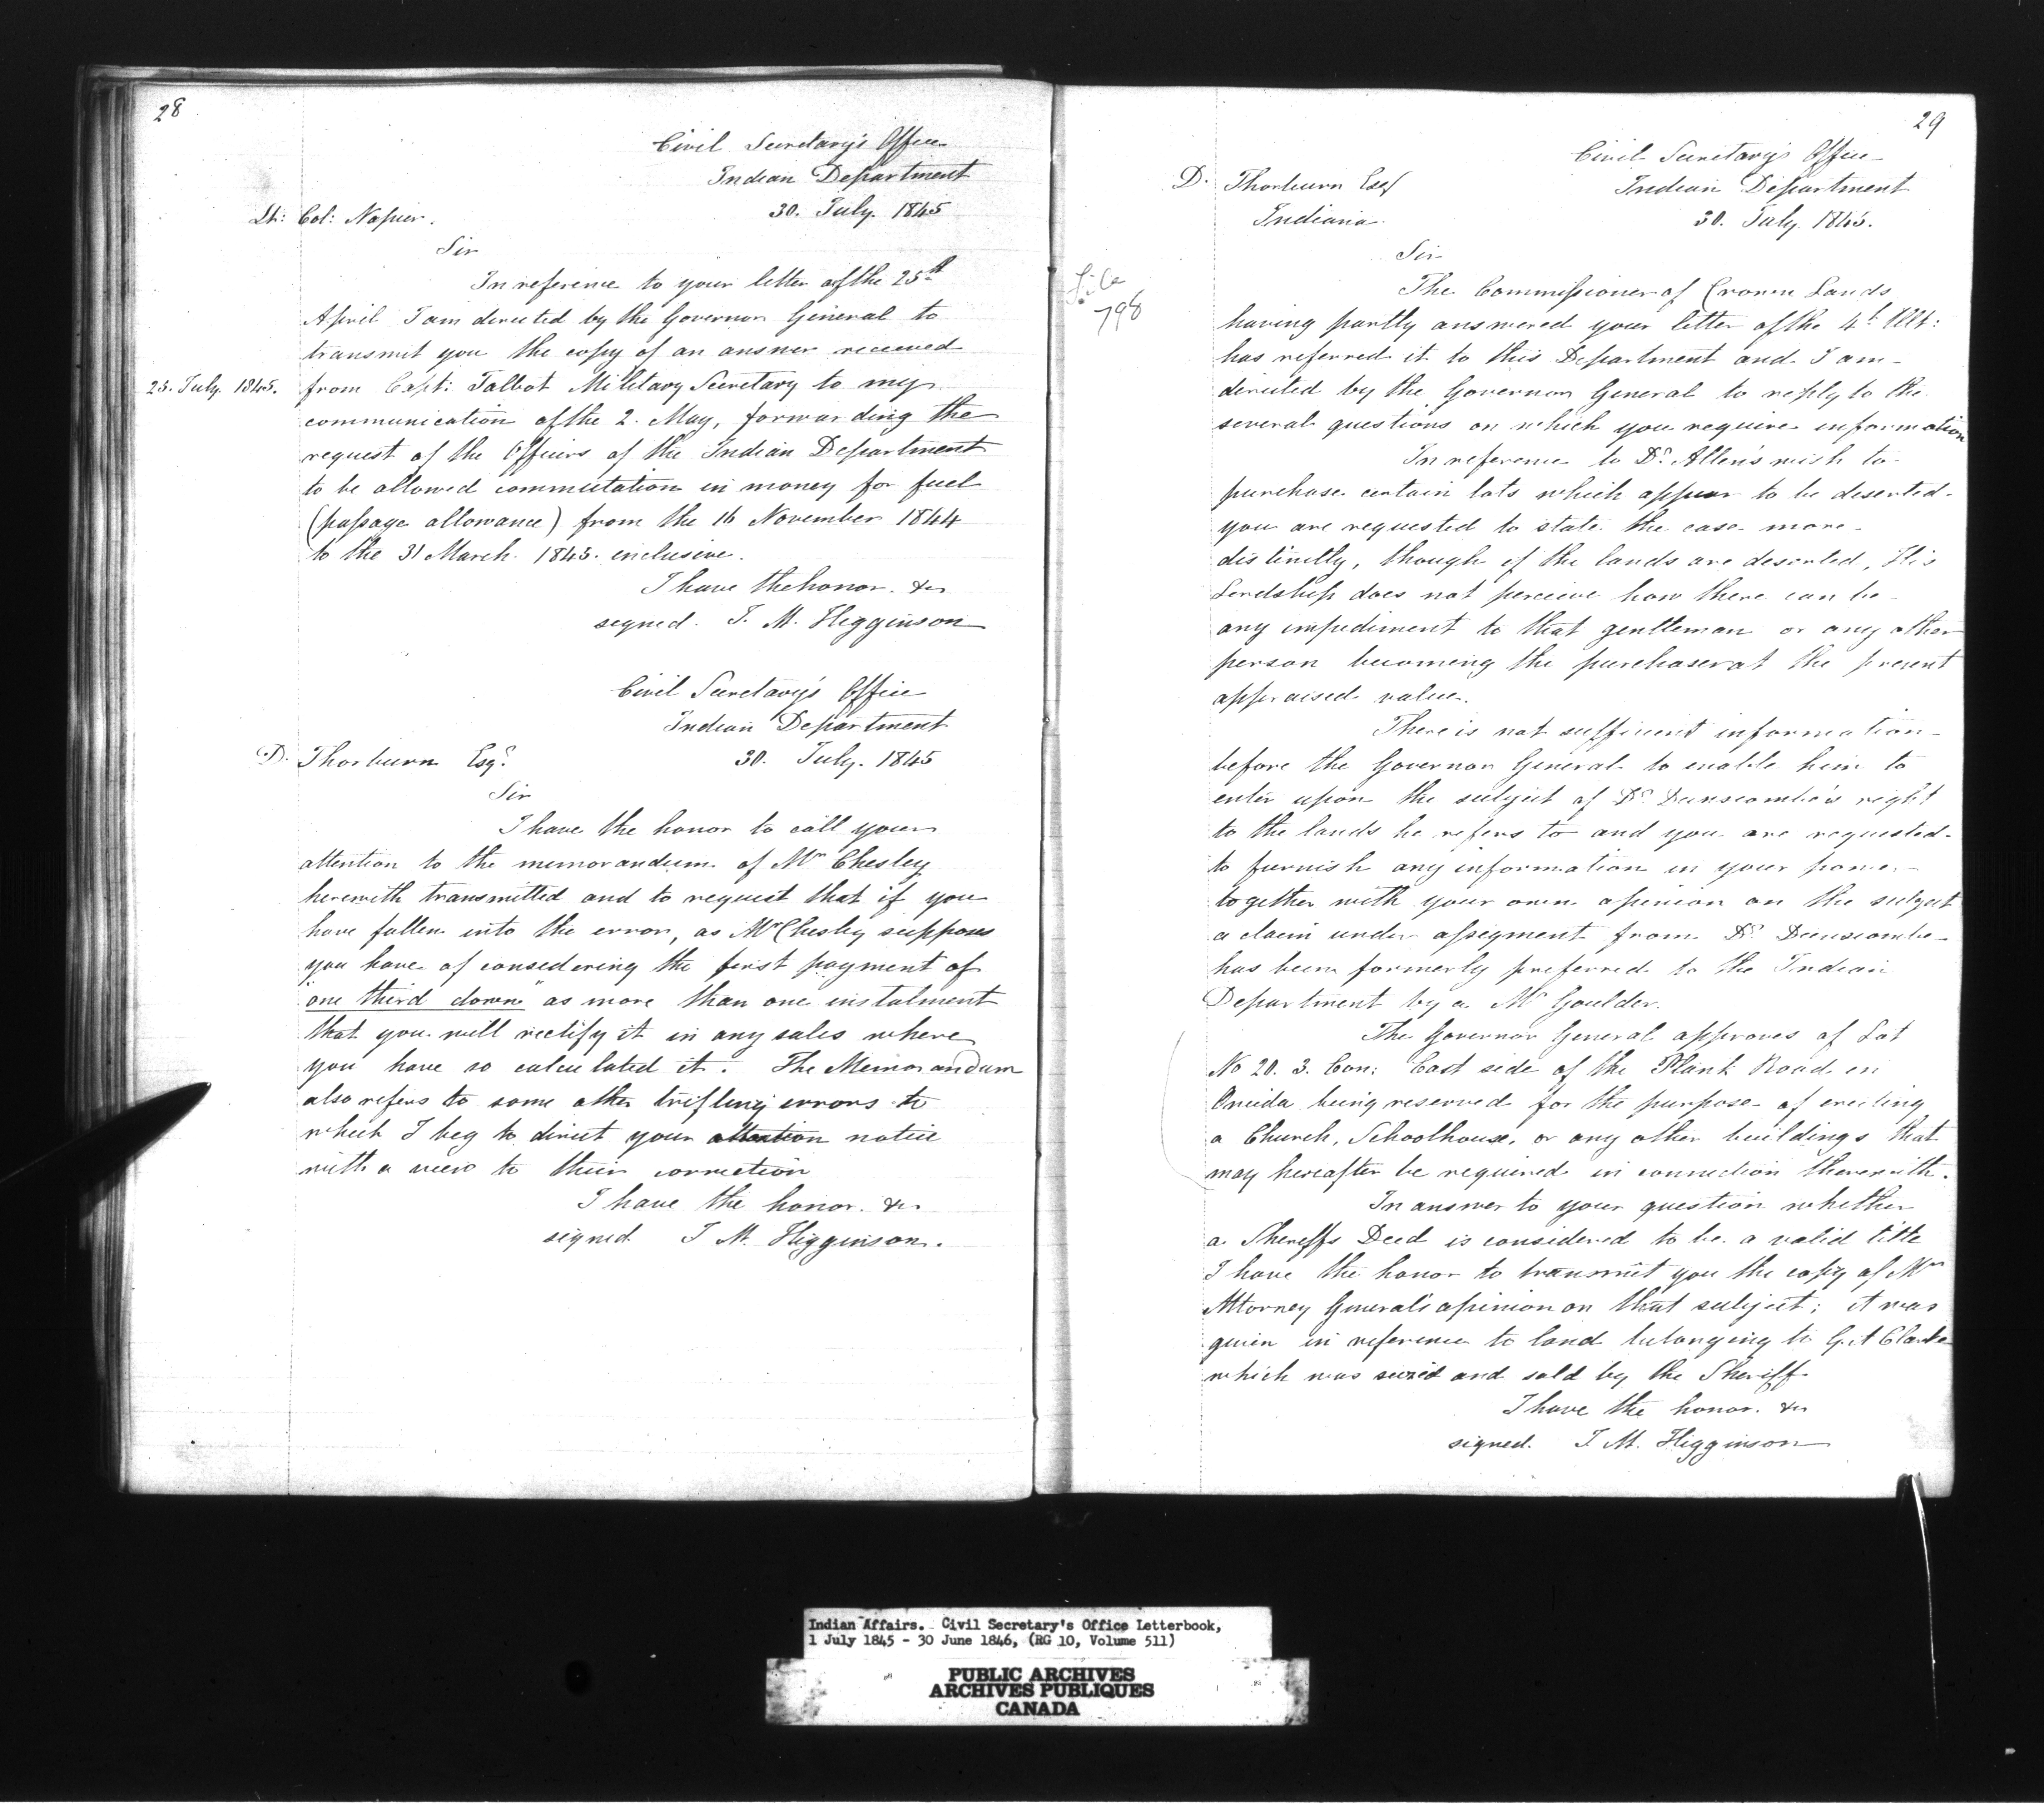 28
Civil Secretary's Office
Indian Department
30. July. 1845
Lt: Col: Napier.
Sir
In reference to your letter of the 25th
April I am directed by the Governor General to
transmit you the copy of an answer received
25. July. 1845. from Capt: Talbot Military Secretary to my
communication of the 2. May, forwarding the
request of the Officers of the Indian Department
to be allowed commutation in money for fuel
(passage allowance) from the 16 November 1844
to the 31 March. 1845. inclusive.
I have the honor. &c
signed. J. M. Higginson
Civil Secretary's Office
Indian Department
30. July. 1845
D. Thorburn Esqr.
Sir
I have the honor to call your
attention to the memorandum of Mr Chesley
herewith transmitted and to request that if you
have fallen into the error, as Mr Chesley supposes
you have of considering the first payment of
"one third down" as more than one instalment
that you will rectify it in any sales where
you have so calculated it. The Memorandum
also refers to some other trifling errors to
which I beg to direct your attention notice
with a view to their correction
I have the honor. &c
signed J M. Higginson.
29
Civil Secretary's Office
Indian Department
30. July. 1845.
D. Thorburn Esq
Indiana.
Sir
File
798
The Commissioner of Crown Lands
having partly answered your letter of the 4th Ult:
has referred it to this Department and I am
directed by the Governor General to reply to the
several questions on which you require information
In reference to Dr. Allen's wish to
purchase certain lots which appear to be deserted
you are requested to state the case more
distinctly, though if the lands are deserted, His
Lordship does not perceive how there can be
any impediment to that gentleman or any other
person becoming the purchaser at the present
appraised value.
There is not sufficient information
before the Governor General to enable him to
enter upon the subject of Dr. Dunscombe's right
to the lands he refers to and you are requested
to furnish any information in your power
together with your own opinion on the subject
a claim under assigment from Dr. Dunscombe
has been formerly preferred to the Indian
Department by a Mr Goulder.
The Governor General approves of Lot
No 20. 3. Con: East side of the Plank Road in
Oneida being reserved for the purpose of erecting
a Church, Schoolhouse, or any other buildings that
may hereafter be required in connection therewith.
In answer to your question whether
a Sheriffs Deed is considered to be a valid title
I have the honor to transmit you the copy of Mr
Attorney General's opinion on that subject; it was
given in reference to land belonging to G. A Clarke
which was seized and sold by the Sheriff
I have the honor. &c
signed. J M. Higginson
Indian Affairs. Civil Secretary's Office Letterbook,
1 July 1845 - 30 June 1846, (RG 10, Volume 511)
PUBLIC ARCHIVES
ARCHIVES PUBLIQUES
CANADA